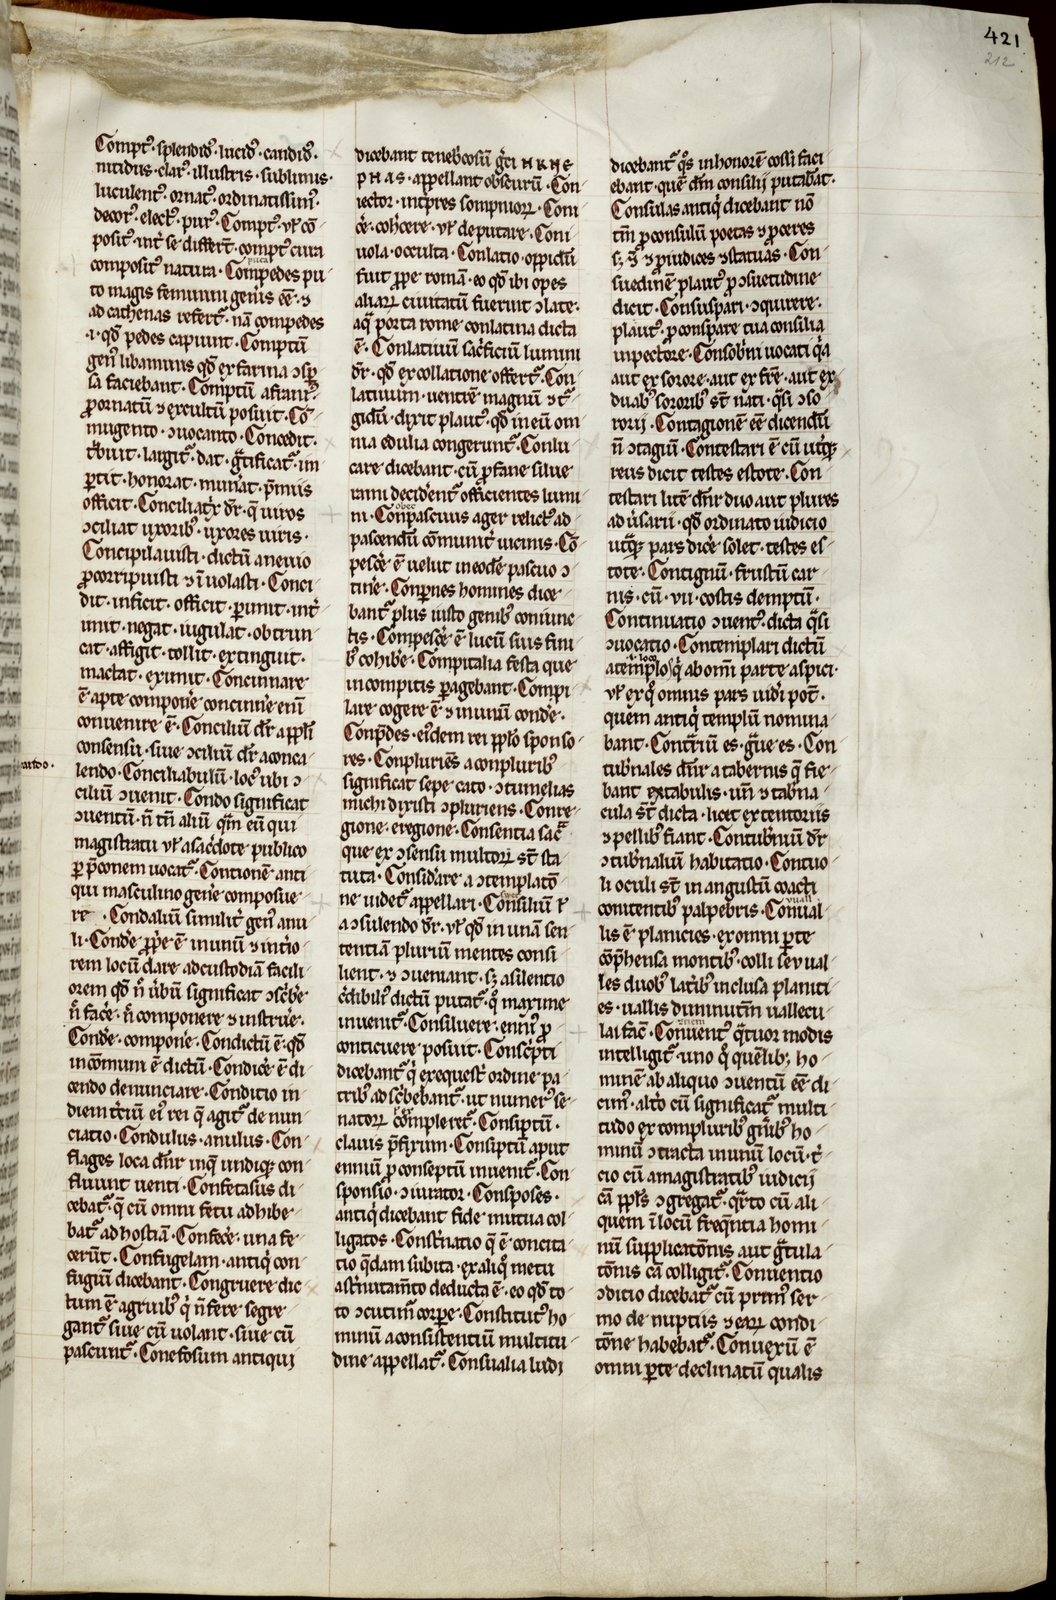 421
212
Comptꝰ· splendidꝰ· lucidꝰ· candidꝰ·
nitidus· clarꝰ· illustris· sublimis·
luculentꝰ· ornatꝰ· ordinatissimꝰ·
decorꝰ· electꝰ· purꝰ· Comptꝰ· ut̉ cō
positꝰ int̉ se differt̄· comptꝰ cura
compositꝰ natura· Compedes pu
to magis feminini gen̉is eē· ⁊
ad cathenas refert̉· nā compedes
·i· qd̄ pedes capiunt· Comptū
gen̉ libaminis qd̄ ex farina ꝯsp̲
sa faciebant· Comptū afraniꝰ
ꝓ ornatū ⁊ excultū posuit· Cō
mugento· ꝯuocanto· Concedit·
t̉buit· largit̉· dat· gͣtificat̉· im
p̲tit· honorat· mun̉at· p̄miis
officit· Conciliatx̉ dr̄· q̄ uiros
ꝯciliat uxoribꝰ· uxores uiris·
Concipilauisti· dictū a neuio
ꝓ corripuisti ⁊ īuolasti· Conci
dit· inficit· officit· p̲imit· int̉
imit· negat· iugulat· obtrun
cat· affligit· tollit· extinguit·
mactat· exunit· Concinnare
ē apte compon̉e concinne enī
conuenire ē· Conciliū dr̄ a pp̄li
consensu· siue ꝯciliū dr̄ a conca
lendo· Conciliabulū· locꝰ ubi ꝯ
ciliū ꝯuenit· Condo significat
ꝯuentū· n̄ tn̄ aliū qͣm eū qui
magistratu ut̉ a sac̉dote publico
p̲ p̄conem uocat̉· Contionē anti
qui masculino gen̉e composue
re· Condaliū similit̉ gen̉ anu
li· Cond̉e ꝓp̉e ē in unū ⁊ int̉io
rem locū dare ad custodiā facili
orem qd̄ n̄ ủbū significat ꝯsc̉be
n̄ fac̉e· n̄ componere ⁊ instrủe·
Cond̉e· compon̉e· Condictū ē· qd̄
in cōmum ē dictū· Condic̉e ē di
cendo denunciare· Conditio in
diem t̉ciū eiꝰ rei q̄ agit̉ de nun
ciatio· Condulus· anulus· Con
flages loca dn̄r in q̄ undiqꝫ con
fluunt uenti· Confetasus di
cebat̉· q̄ cū omni fetu adhibe
bat̉ ad hostiā· Confec̉e· una fe
cerūt· Confugelam· antiqͥ con
fugiū dicebant· Congruere dic
tum ē a gruibꝰ qͥ n̄ fere segre
gant̉ siue cū uolant· siue cū
pascunt̉· Conefosum antiqui
dicebant teneb̉cosū gͤci
· appellant obscurū· Con
iector· int̉pres sompnioꝝ· Con
c̉e· coh̉cere· ut̉ deputare· Coni
uola· occulta· Conlatio· oppidū
fuit ꝓpe romā· eo qd̄ ibi opes
aliaꝝ ciuitatū fuerint ꝯlate·
a qͣ porta rome conlatina dicta
ē· Conlatiuū sac̉ficiū lumini
dr̄· qd̄ ex collatione offert̉· Con
latiuum· uentrē magnū ⁊ t̉
gidū· dixit plautꝰ· qd̄ in eū om
nia edulia congerunt̉· Conlu
care dicebant· cū ꝓfane silue
rami decident̉ officientes lumi
ni· Conpascuus ager relictꝰ ad
pascendū cōmunit̉ uicinis· Cō
pesc̉e ē uelut in eodē pascuo ꝯ
tin̉e· Conp̲nes homines dice
bant̉ plus iusto genibꝰ coniunc
tis· Compesc̉e ē lucū suis fini
bꝰ cohib̉e· Compitalia festa que
in compitis p̲agebant· Compi
lare cogere ē ⁊ in unū cond̉e·
Conp̄des· eiꝰdem rei pp̄lo sponso
res· Conpluriēs a conpluribꝰ
significat sepe· cato· ꝯtumelias
michi dixisti ꝯpluriens· Conre
gione· eregione· Consentia sacͣ
que ex ꝯsensu multoꝝ st̄ sta
tuta· Consid̉are a ꝯtemplatō
ne uidet̉ appellari· Consiliū ut̉
a ꝯsulendo dr̄· ut̉ qd̄ in unā sen
tentiā pluriū mentes consi
lient· ⁊ ꝯueniant· sꝫ a silentio
c̉dibiliꝰ dictū putat̉· qͦ maxime
inuenit̉· Consiluere· enniꝰ ꝓ
conticuere posuit· Consc̉pti
dicebant̉ qͥ ex equest̉ ordine pa
tribꝰ adsc̉bebant̉· ut numerꝰ se
natoꝝ compleret̉· Consiptū·
clauis p̄fixum· Consiptū aput
enniū ꝓ conseptū inuenit̉· Con
sponsio· ꝯiurator· Consposes·
antiqͥ dicebant fide mutua col
ligatos· Const̉natio q̄ ē concita
tio qͣdam subita· ex aliqͦ metu
a st̉nutam̄to deducta ē· eo qd̄ to
to ꝯcutim̉ corp̲e· Constitutꝰ ho
minū a consistentiū multitu
dine appellat̉· Consualia ludi
dicebant̉ qͦs in honorē cossi faci
ebant· quē dm̄ consilij putabāt·
Consulas antiqͥ dicebant nō
tm̄ ꝓ consulū poetas ⁊ ꝓceres
sꝫ ⁊ ꝓ iudices ⁊ statuas· Con
suedinē plautꝰ ꝓ ꝯsuetudine
dicit· Consuspari· ꝯquirere·
plautꝰ· ꝓ conspare tua consilia
in pectore· Consobrini uocati qͥa
aut ex sorore· aut ex fr̄e· aut ex
duabꝰ sororibꝰ st̄ nati· qͣsi ꝯso
rorij· Contagionē eē dicendū
n̄ ꝯtagiū· Contestari ē cū ut̉qꝫ
reus dicit testes estote· Con
testari litē dn̄r duo aut plures
adủsarii· qd̄ ordinato iudicio
ut̉qꝫ pars dic̉e solet· testes es
tote· Contignū· frustū car
nis· cū· vii· costis demptū·
Continuatio ꝯuentꝰ· dicta qͣsi
ꝯuocatio· Contemplari dictū
a templo qͥ ab om̄i parte aspici
ut̉ ex qͦ omnis pars uid̉i pot̉·
quem antiqͥ templū nomina
bant· Cont̉riū es· gͣue es· Con
tub̉nales dn̄r a tabernis q̄ fie
bant ex tabulis· un̄ ⁊ tab̉na
cula st̄ dicta· licet ex tentoriis
⁊ pellibꝰ fiant· Contub̉niū dr̄
ꝯtub̉naliū habitatio· Contuo
li oculi st̄ in angustū coacti
coniuentibꝰ palpebris· Conual
lis ē planicies· ex omni p̲te
cōp̄hensa montibꝰ· colli seu ual
les duobꝰ lat̉ibꝰ inclusa planiti
es· uallis diminutiū uallecu
lā fac̄· Conuentꝰ qͣtuor modis
intelligit̉· uno qͦ quēlibꝫ ho
minē ab aliquo ꝯuentū eē di
cimꝰ· alt̉o cū significat̉ multi
tudo ex compluribꝰ gn̉ibꝰ ho
minū ꝯtracta in unū locū· t̉
cio cū a magistratibꝰ iudicij
cā pp̄ls ꝯgregat̉· qͣrto cū ali
quem ī locū freqͣntia homi
nū supplicatōnis aut gͣtula
tōnis cā colligit̉· Conuentio
ꝯditio dicebat̉ cū prim̉ ser
mo de nuptiis ⁊ eaꝝ condi
tōne habebat̉· Conuexū ē
omni p̲te declinatū qualis